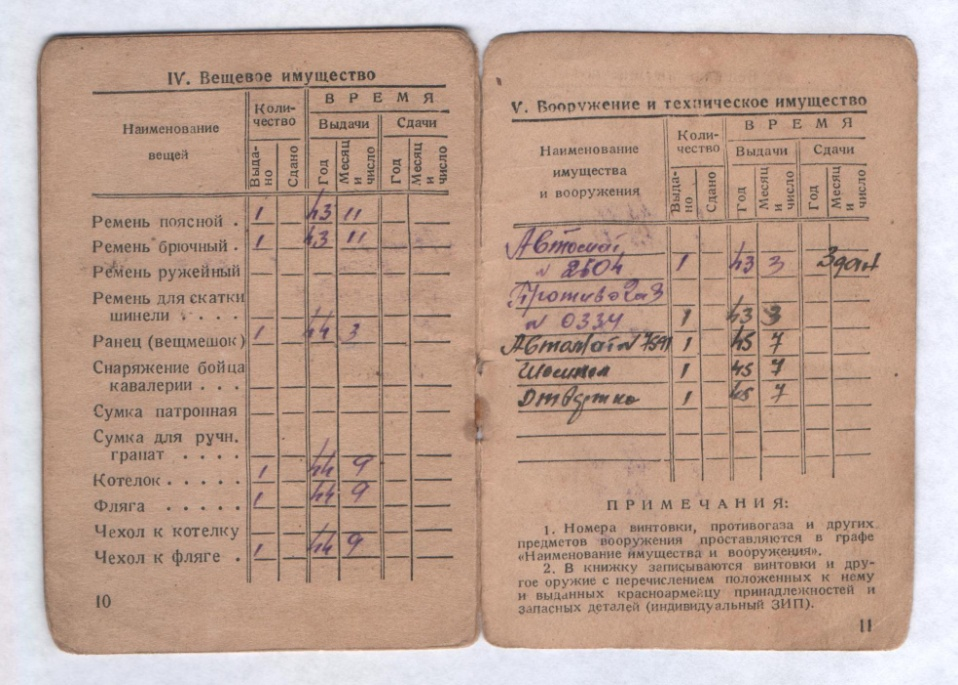 IV. Вещевое имущество
Наименование вещей
Коли-
чество
ВРЕМЯ
Выдачи
Сдачи
Выда-
но
Сдано
Год
Месяц
и
число
Год
Месяц
и
число
Ремень поясной . 1 43 11
Ремень брючный . 1 43 11
Ремень ружейный
Ремень для скатки
шинели . . . .
Ранец (вещмешок) 1 44 3
Снаряжение бойца
кавалерии . . .
Сумка патронная
Сумка для ручн.
гранат . . . .
Котелок . . . . . 1 44 9
Фляга . . . . . 1 44 9
Чехол к котелку
Чехол к фляге . 1 44 9
10
V. Вооружение и техническое имущество
Наименование
имущества
и вооружения
Коли-
чество
ВРЕМЯ
Выдачи
Сдачи
Выда-
но
Сдано
Год
Месяц
и
число
Год
Месяц
и
число
Автомат
№ 2504 1 43 3 Здан
Противогаз
№ 0334 1 43 3
Автомат № 7591 1 45 7
1 45 7
Отвертка 1 45 7
ПРИМЕЧАНИЯ:
1. Номера винтовки, противогаза и других
предметов вооружения проставляются в графе
«Наименование имущества и вооружения».
2. В книжку записываются винтовки и дру-
гое оружие с перечислением положенных к нему
и выданных красноармейцу принадлежностей и
запасных деталей (индивидуальный ЗИП).
11